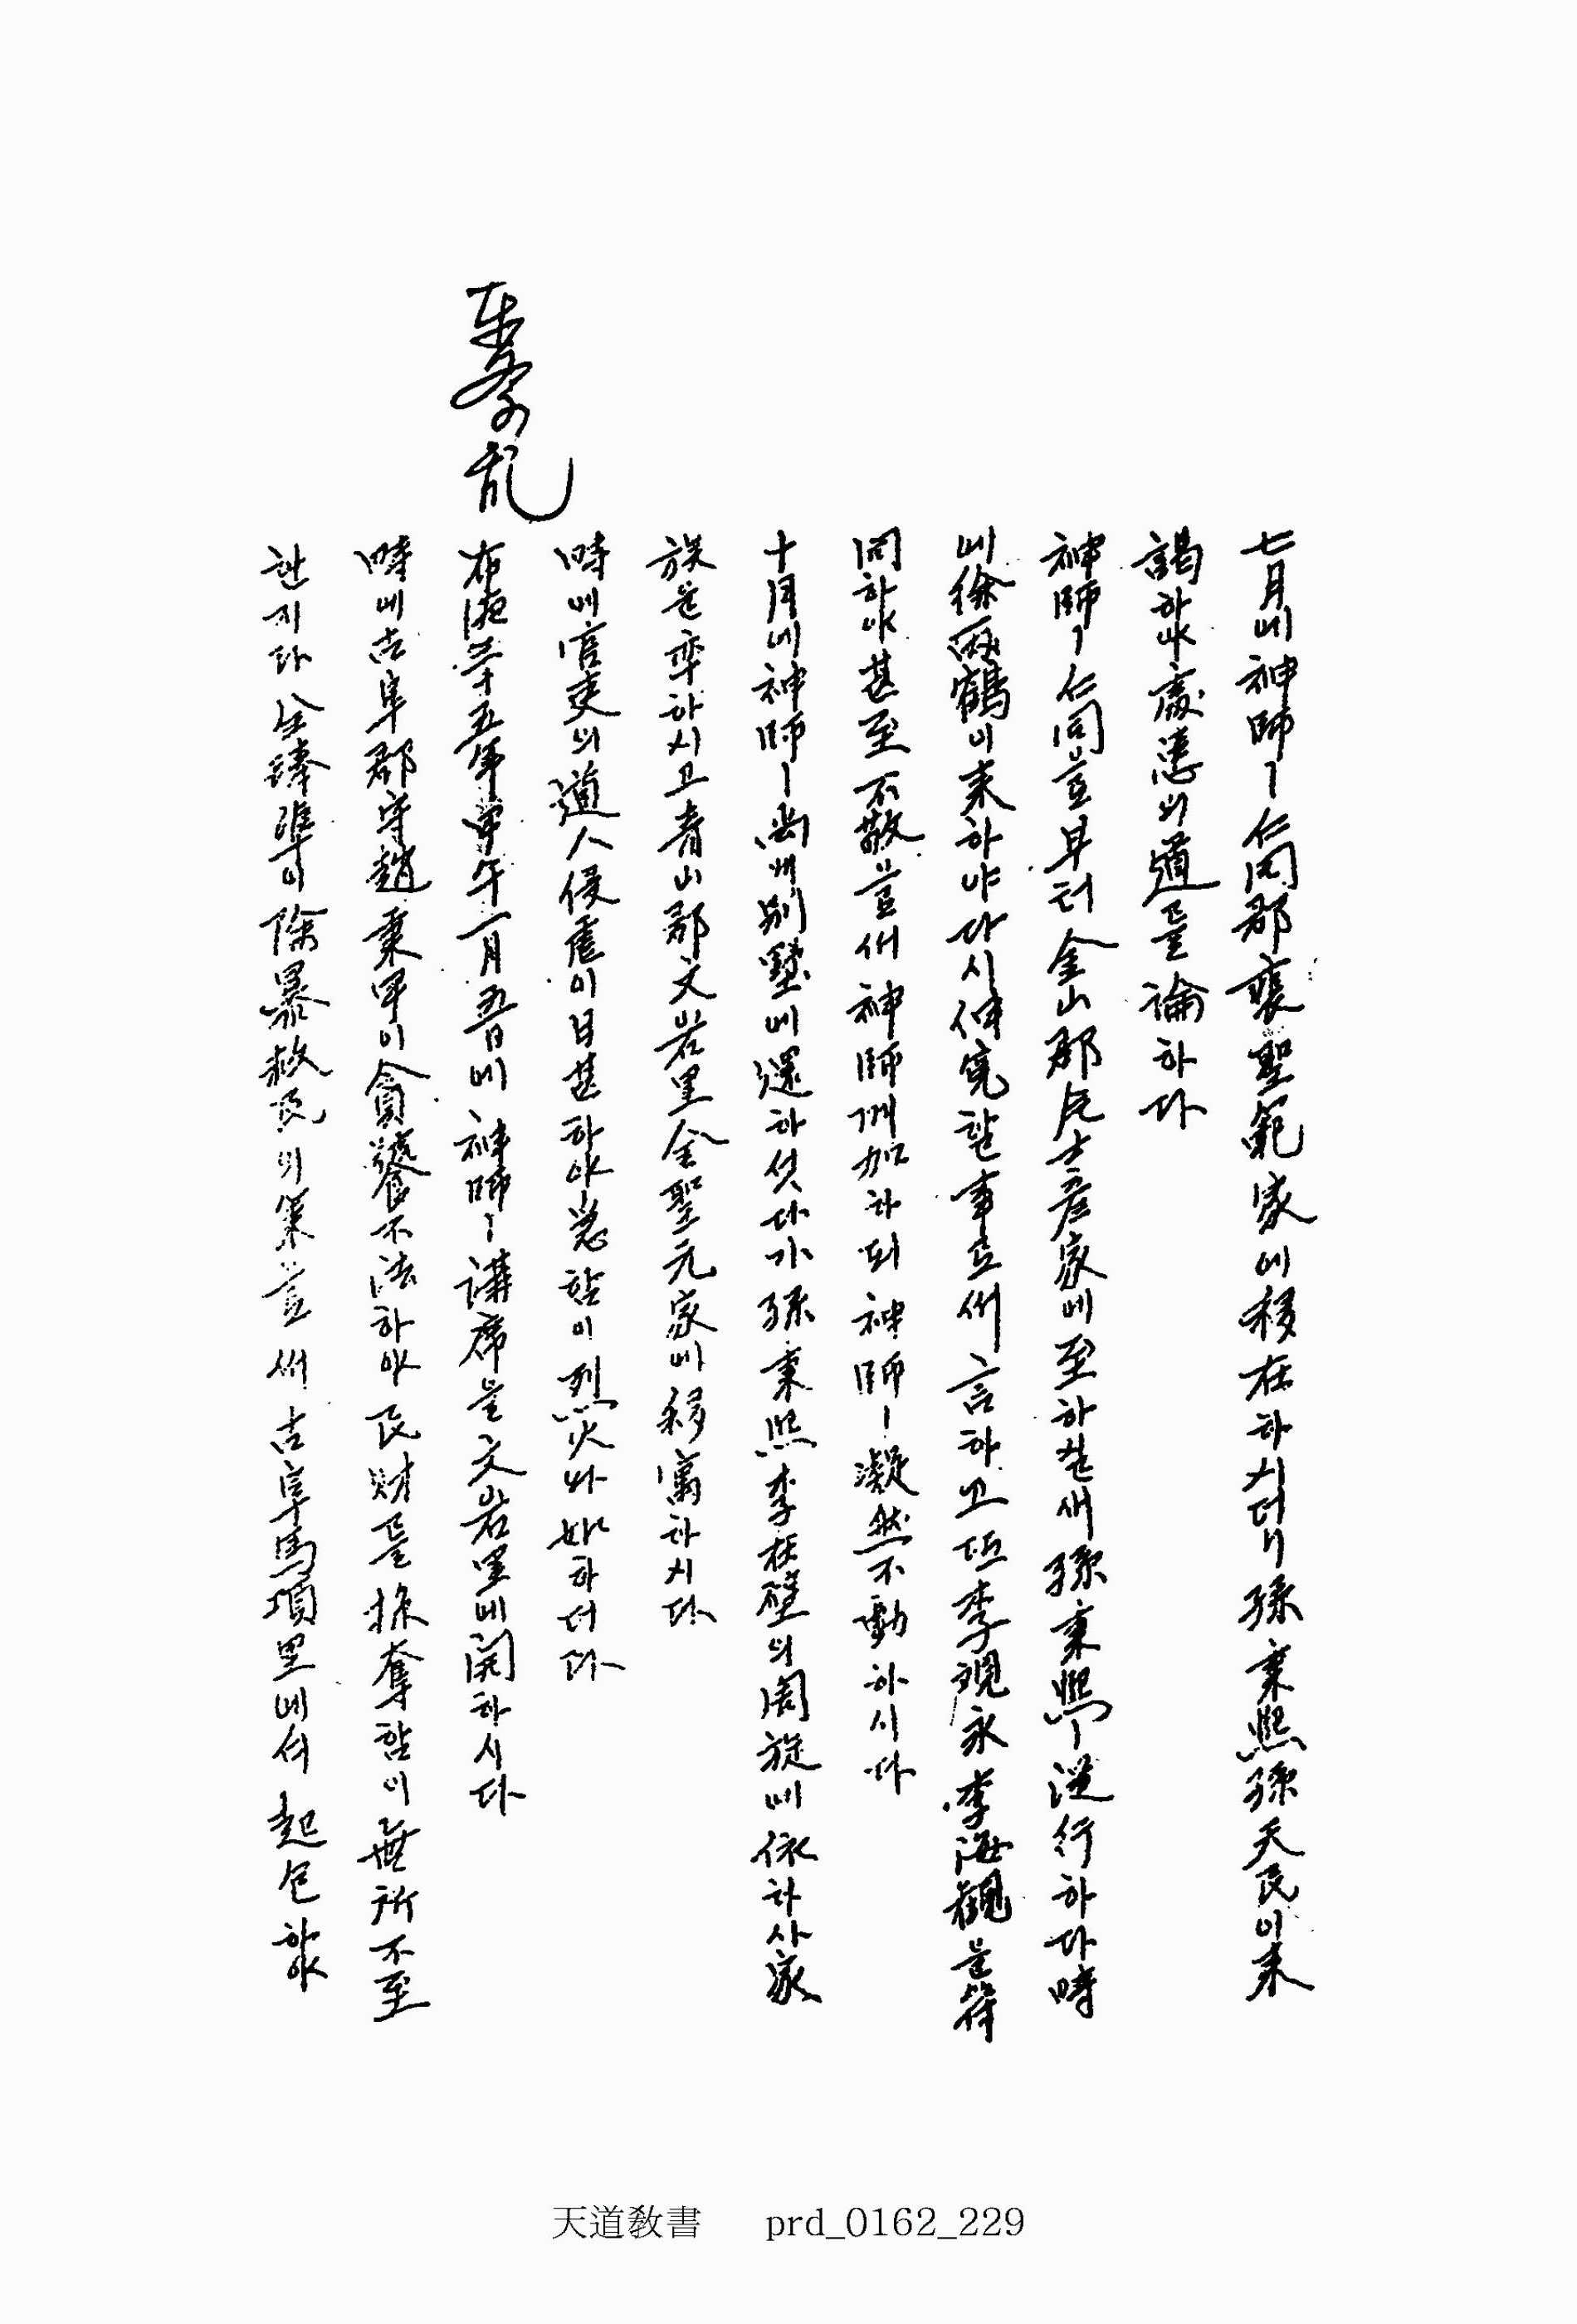 東學乱
七月에 神師ㅣ 仁同郡 裵聖範家에 移在하시더니 孫秉熙 孫天民이 來
謁하야 處患의 道를 論하다
神師ㅣ 仁同으로브터 金山郡 片士彦家에 至하실새 孫秉熙ㅣ 從行하다 時
에 徐丙鶴이 來하야 다시 伸寃할 事로써 言하고 또 李 永 李海觀을
同하야 甚至不敬으로써 神師께 加하되 神師ㅣ 凝然不動하시다
十月에 神師ㅣ 尙州 別墅에 還하섯다가 孫秉熙 李在璧의 周旋에 依하사 家
族을 率하시고 靑山郡 文岩里 金聖元家에 移寓하시다
時에 官吏의 道人侵虐이 日甚하야 急함이 烈火와 如하더라
布德三十五年 甲午 一月 五日에 神師ㅣ 講席을 文岩里에 開하시다
時에 古阜郡守 趙秉甲이 貪饕不法하야 民財를 掠奪함이 無所不至
한지라 全琫準이 除暴救民의 策으로써 古阜 馬項里에서 起包하야
天道敎書 prd_0162_229